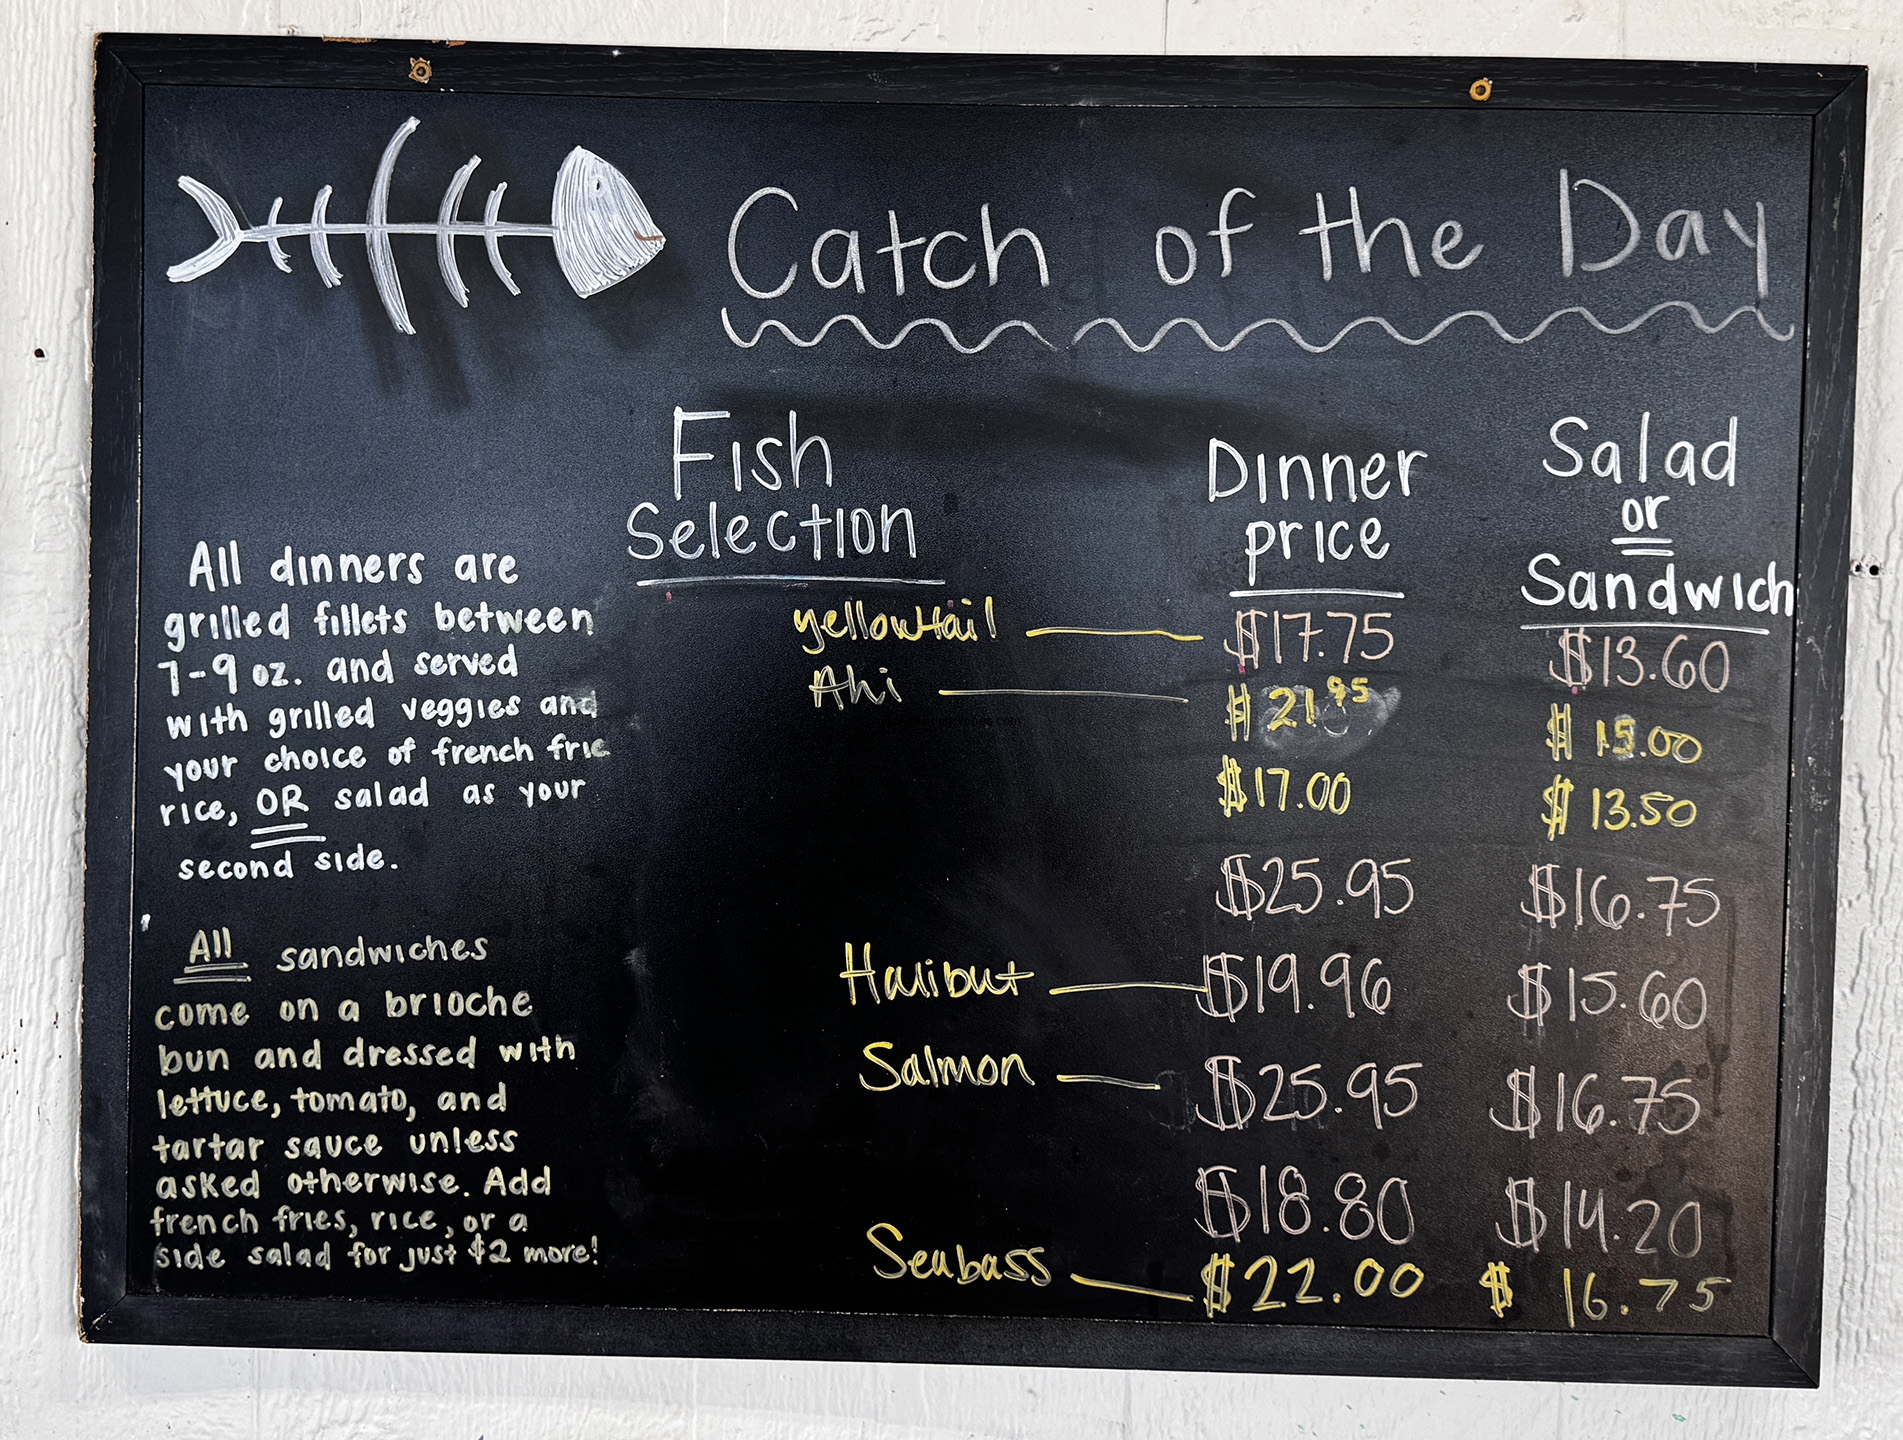 Catch of the Day
Fish
Selection
Dinner
price
Salad
or
Sandwich
All dinners are
grilled fillets between
7-9 oz. and served
with grilled veggies and
your choice of french frie
rice, OR salad as your
second side.
All sandwiches
come on a brioche
bun and dressed with
lettuce, tomato, and
tartar sauce unless
asked otherwise. Add
french fries, rice, or a
side salad for just $2 more!
yellowtail $17.75 $13.60
Ahi $21.95 $15.00
$17.00 $13.50
$25.95 $16.75
Halibut $19.96 $15.60
Salmon $25.95 $16.75
$18.80 $14.20
Seabass $22.00 $16.75